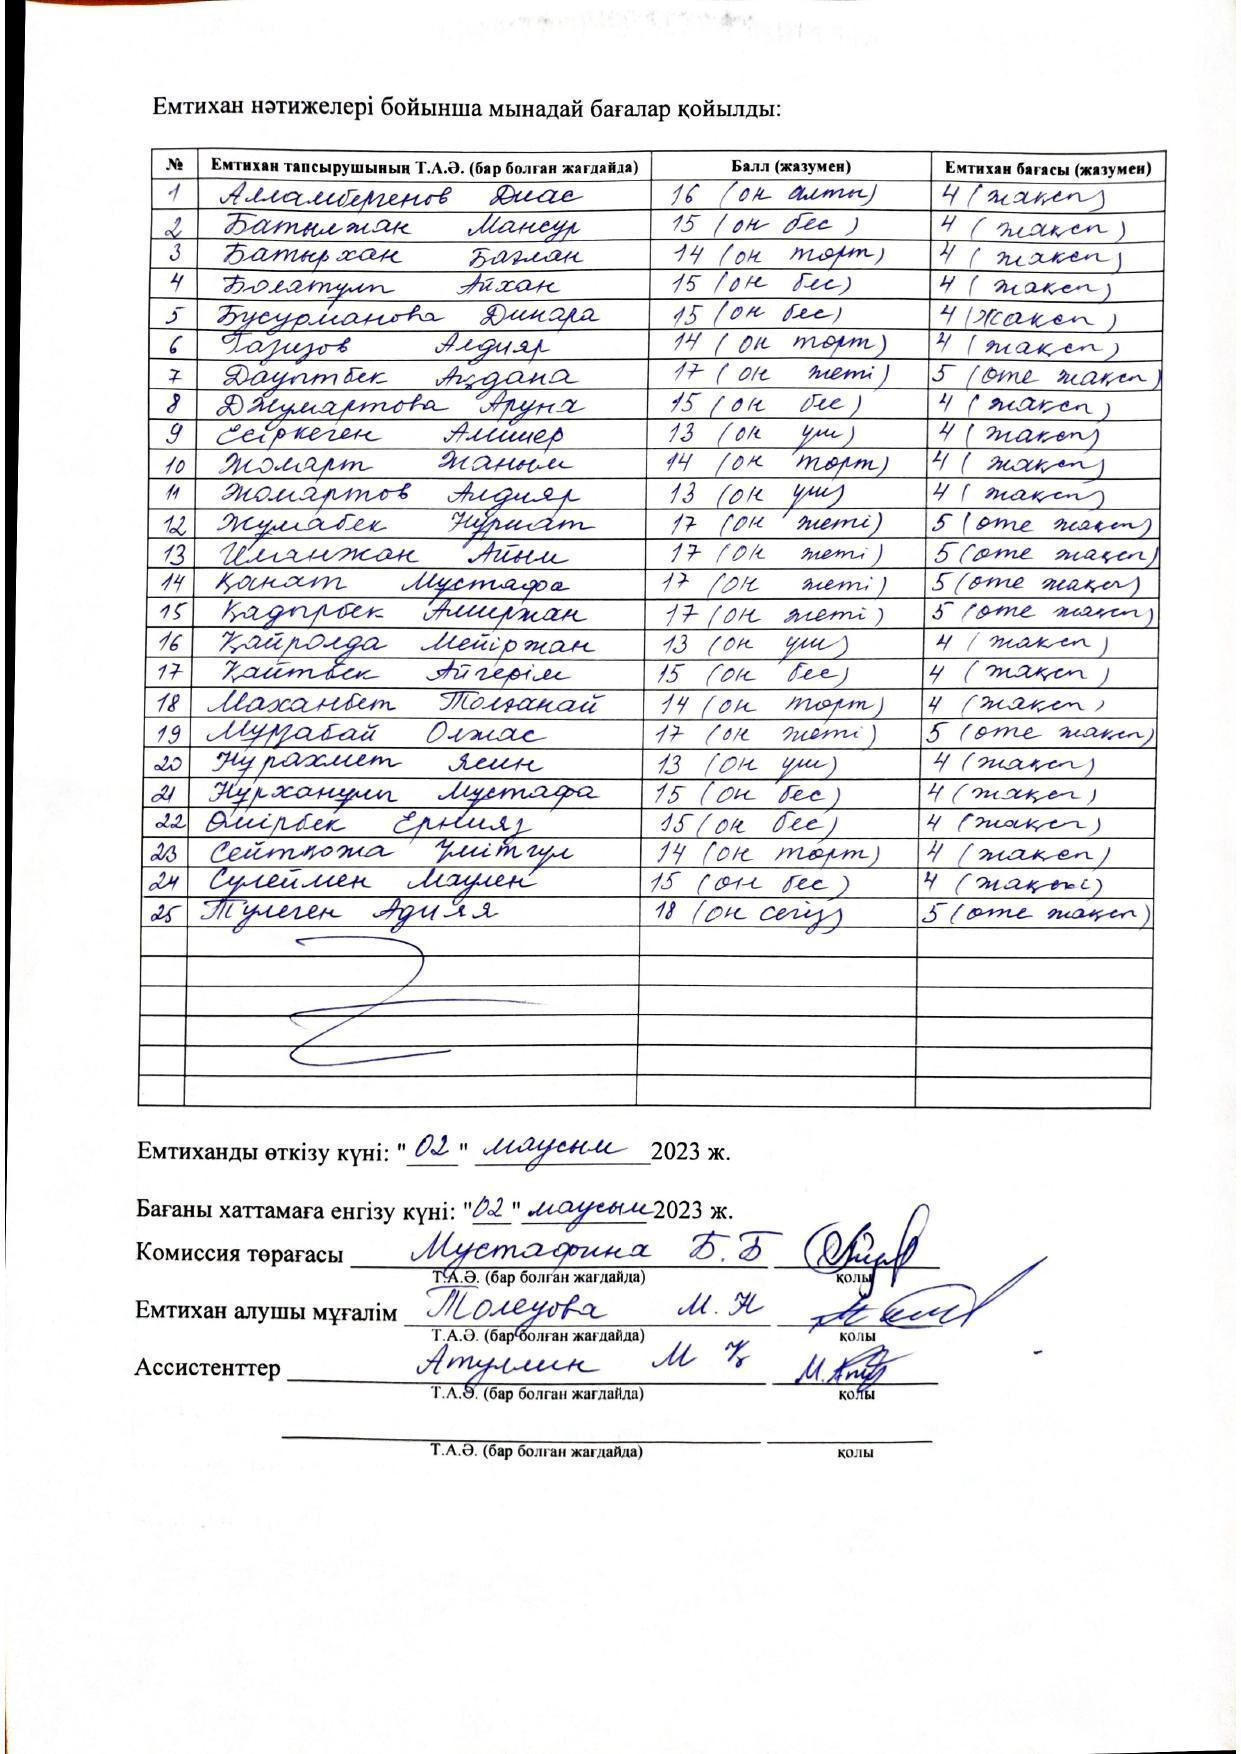 Емтихан нәтижелері бойынша мынадай бағалар қойылды:
№ Емтихан тапсырушының Т.А.Ә. (бар болған жағдайда) Балл (жазумен) Емтихан бағасы (жазумен)
1 Алламбергенов Диас 16 (он алты) 4 (жақсы)
2 Батылжан Мансур 15 (он бес) 4 (жақсы)
3 Батырхан Бағлан 14 (он төрт) 4 (жақсы)
4 Болатұлы Айхан 15 (он бес) 4 (жақсы)
5 Бусурманова Динара 15 (он бес) 4 (жақсы)
6 Газизов Алдияр 14 (он төрт) 4 (жақсы)
7 Дәулетбек Ақдана 17 (он жеті) 5 (өте жақсы)
8 Джумартова Аруна 15 (он бес) 4 (жақсы)
9 Есіркеген Алишер 13 (он үш) 4 (жақсы)
10 Жомарт Жаным 14 (он төрт) 4 (жақсы)
11 Жомартов Алдияр 13 (он үш) 4 (жақсы)
12 Жумабек Нұрғат 17 (он жеті) 5 (өте жақсы)
13 Иманжан Айым 17 (он жеті) 5 (өте жақсы)
14 Қанат Мустафа 17 (он жеті) 5 (өте жақсы)
15 Қадырбек Амиржан 17 (он жеті) 5 (өте жақсы)
16 Қайролда Мейіржан 13 (он үш) 4 (жақсы)
17 Қайтбек Айгерім 15 (он бес) 4 (жақсы)
18 Маханбет Толғанай 14 (он төрт) 4 (жақсы)
19 Мурзабай Олжас 17 (он жеті) 5 (өте жақсы)
20 Нұрахмет Ясин 13 (он үш) 4 (жақсы)
21 Нұрханұлы Мустафа 15 (он бес) 4 (жақсы)
22 Өмірбек Ернияз 15 (он бес) 4 (жақсы)
23 Сейтқожа Үмітгүл 14 (он төрт) 4 (жақсы)
24 Сүлеймен Маулен 15 (он бес) 4 (жақсы)
25 Түлеген Адиля 18 (он сегіз) 5 (өте жақсы)
Емтиханды өткізу күні: "02" маусым 2023 ж.
Бағаны хаттамаға енгізу күні: "02" маусым 2023 ж.
Комиссия төрағасы Мустафина Б.Б
Т.А.Ә. (бар болған жағдайда) қолы
Емтихан алушы мұғалім Толеуова М.Н
Т.А.Ә. (бар болған жағдайда) қолы
Ассистенттер Атуллин М Қ
Т.А.Ә. (бар болған жағдайда) қолы
Т.А.Ә. (бар болған жағдайда) қолы